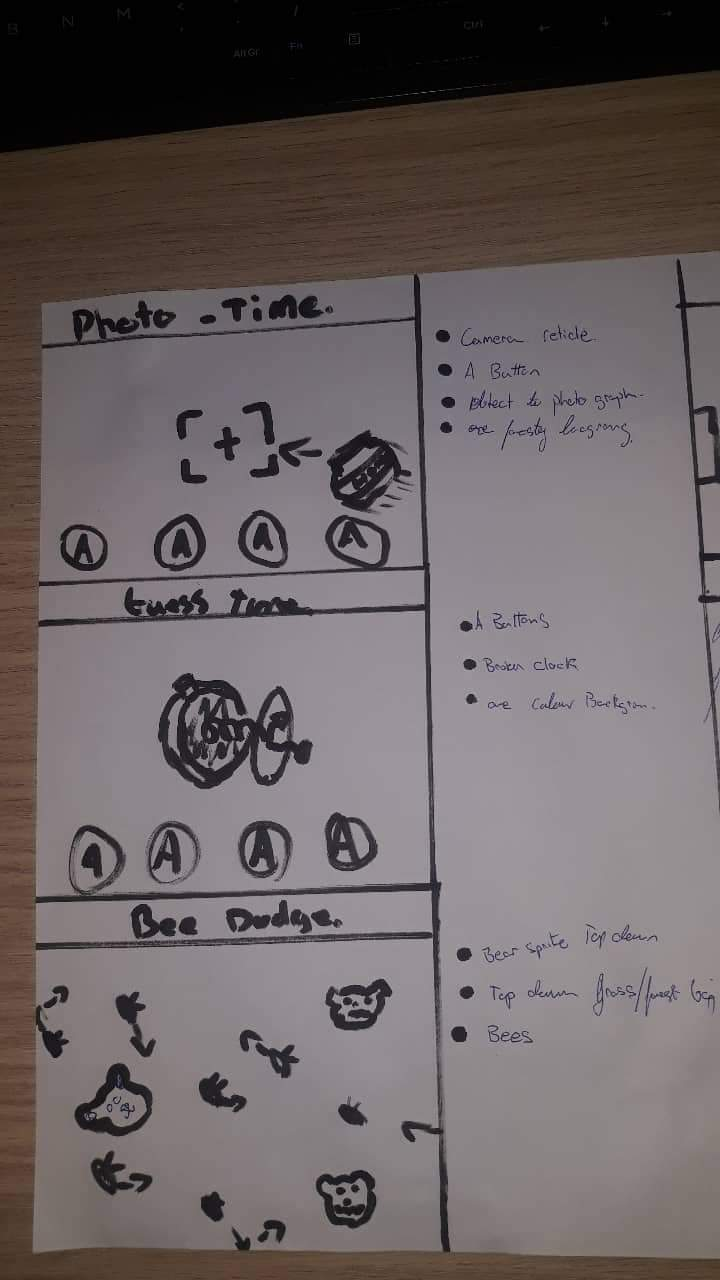 B N M < /
Alt Gr Fn Ctrl
Photo - Time.
+
A A A A
Camera reticle.
A Button
Object to photo graph.
Guess Time
A A A A
A Buttons
Broken clock
Colour
Bee Dodge.
Bear sprite Top down
Top down grass/forest
Bees